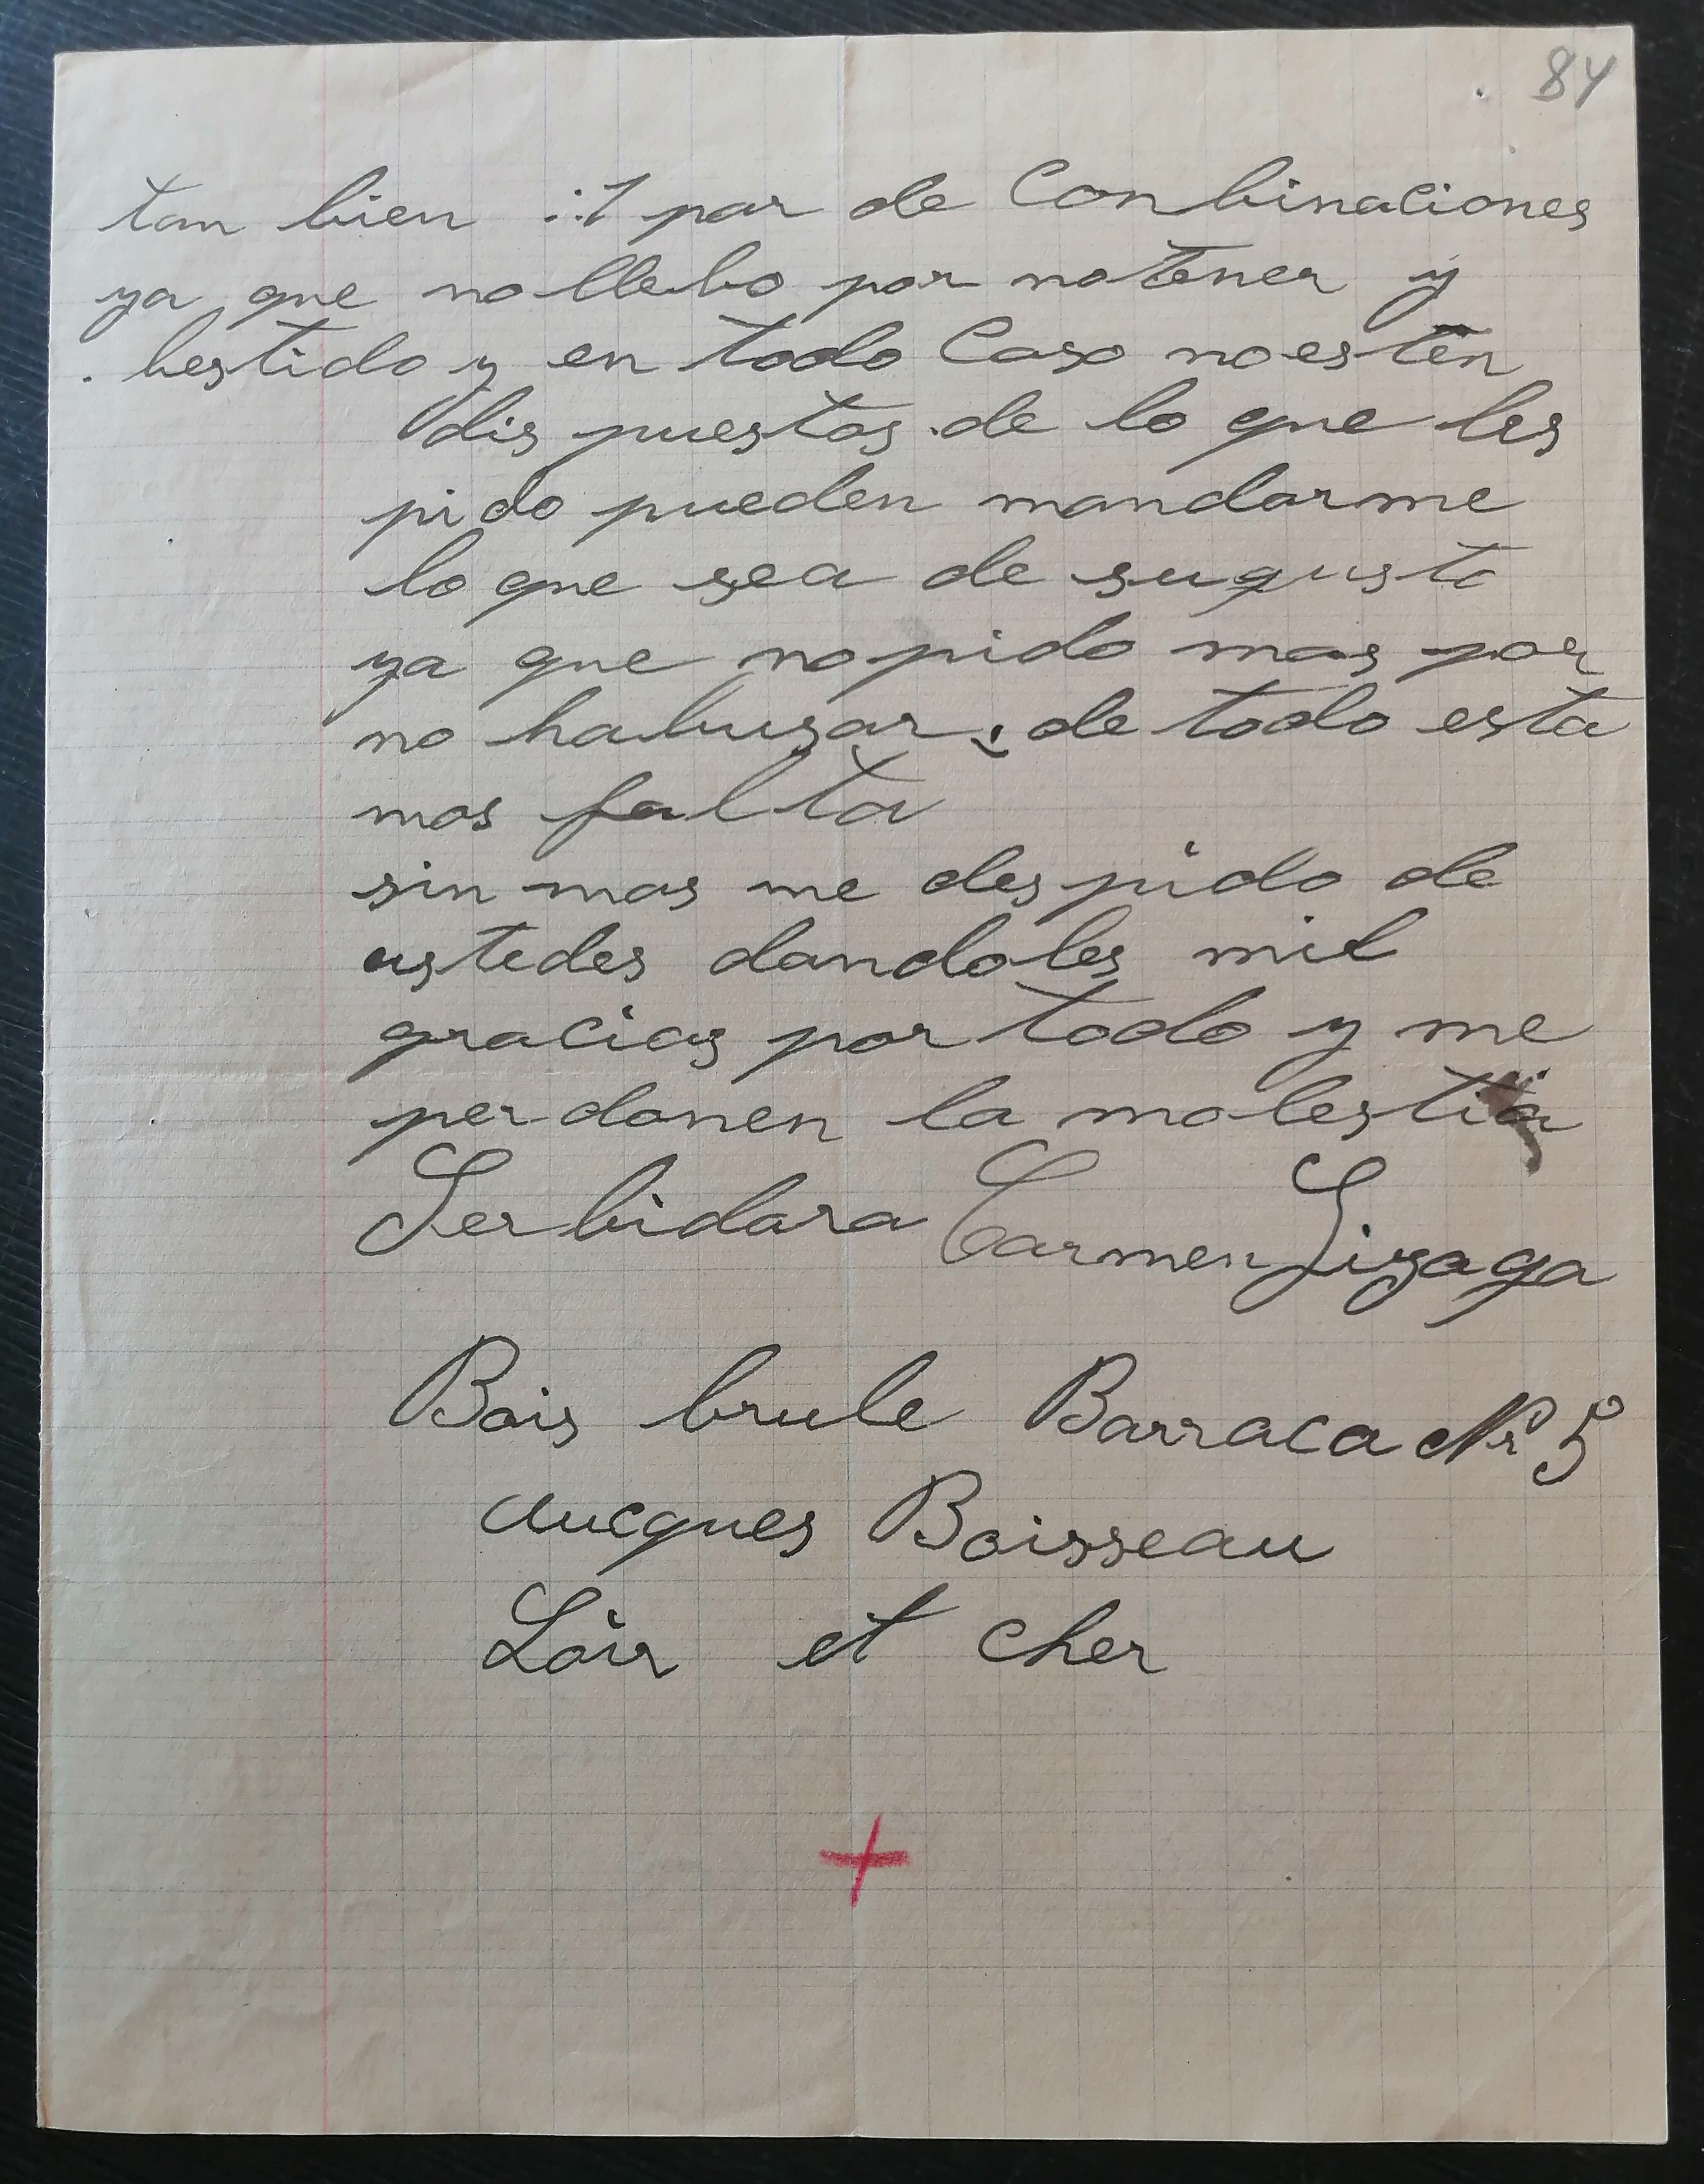 84
tan bien :1 par de Conbinaciones
ya que no llebo por no tener y
bestido y en todo Caso no esten
dis puestos de lo que les
pido pueden mandarme
lo que sea de su gusto
ya que no pido mas por
no habusar; de todo esta
mos falta
sin mas me despido de
ustedes dandoles mil
gracias por todo y me
perdonen la molestia
Serbidora Carmen Lizaga
Bois brule Barraca Nr 5
Jucques Boisseau
Loir et cher